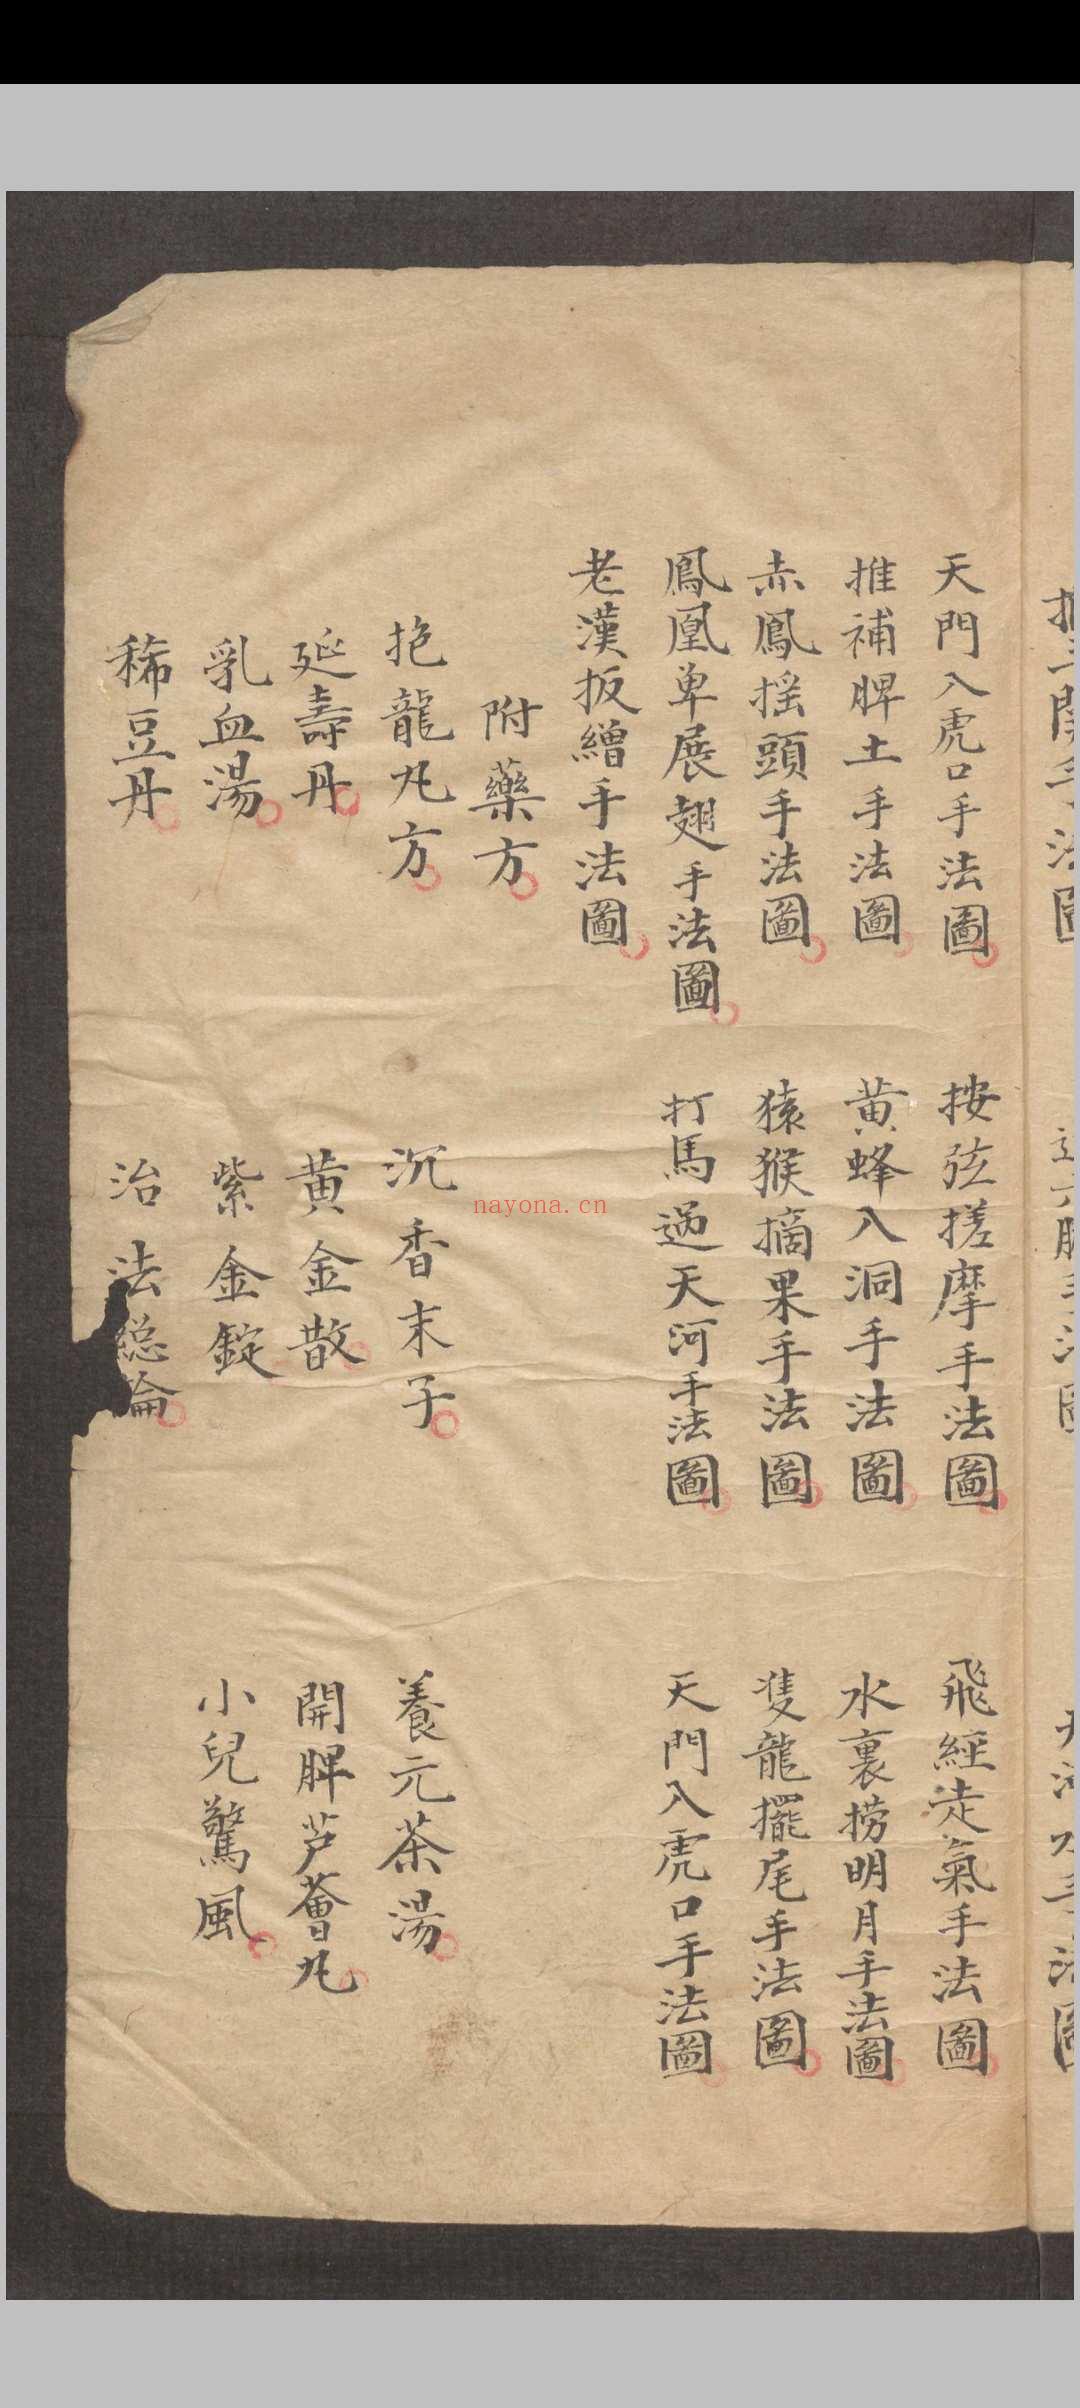 天門入虎口手法圖 按弦搓摩手法圖 飛經走氣手法圖
推補脾土手法圖 黄蜂入洞手法圖 水裏撈明月手法圖
赤鳳揺頭手法圖 猿猴摘果手法圖 隻龍擺尾手法圖
鳳凰単展翅手法圖 打馬過天河手法圖 天門入虎口手法圖
老漢扳繒手法圖
附藥方
抱龍丸方 沉香末子 養元茶湯
延壽丹 黄金散 開脾芦薈丸
乳血湯 紫金錠 小兒驚風
稀豆丹 治法総論
nayona.cn